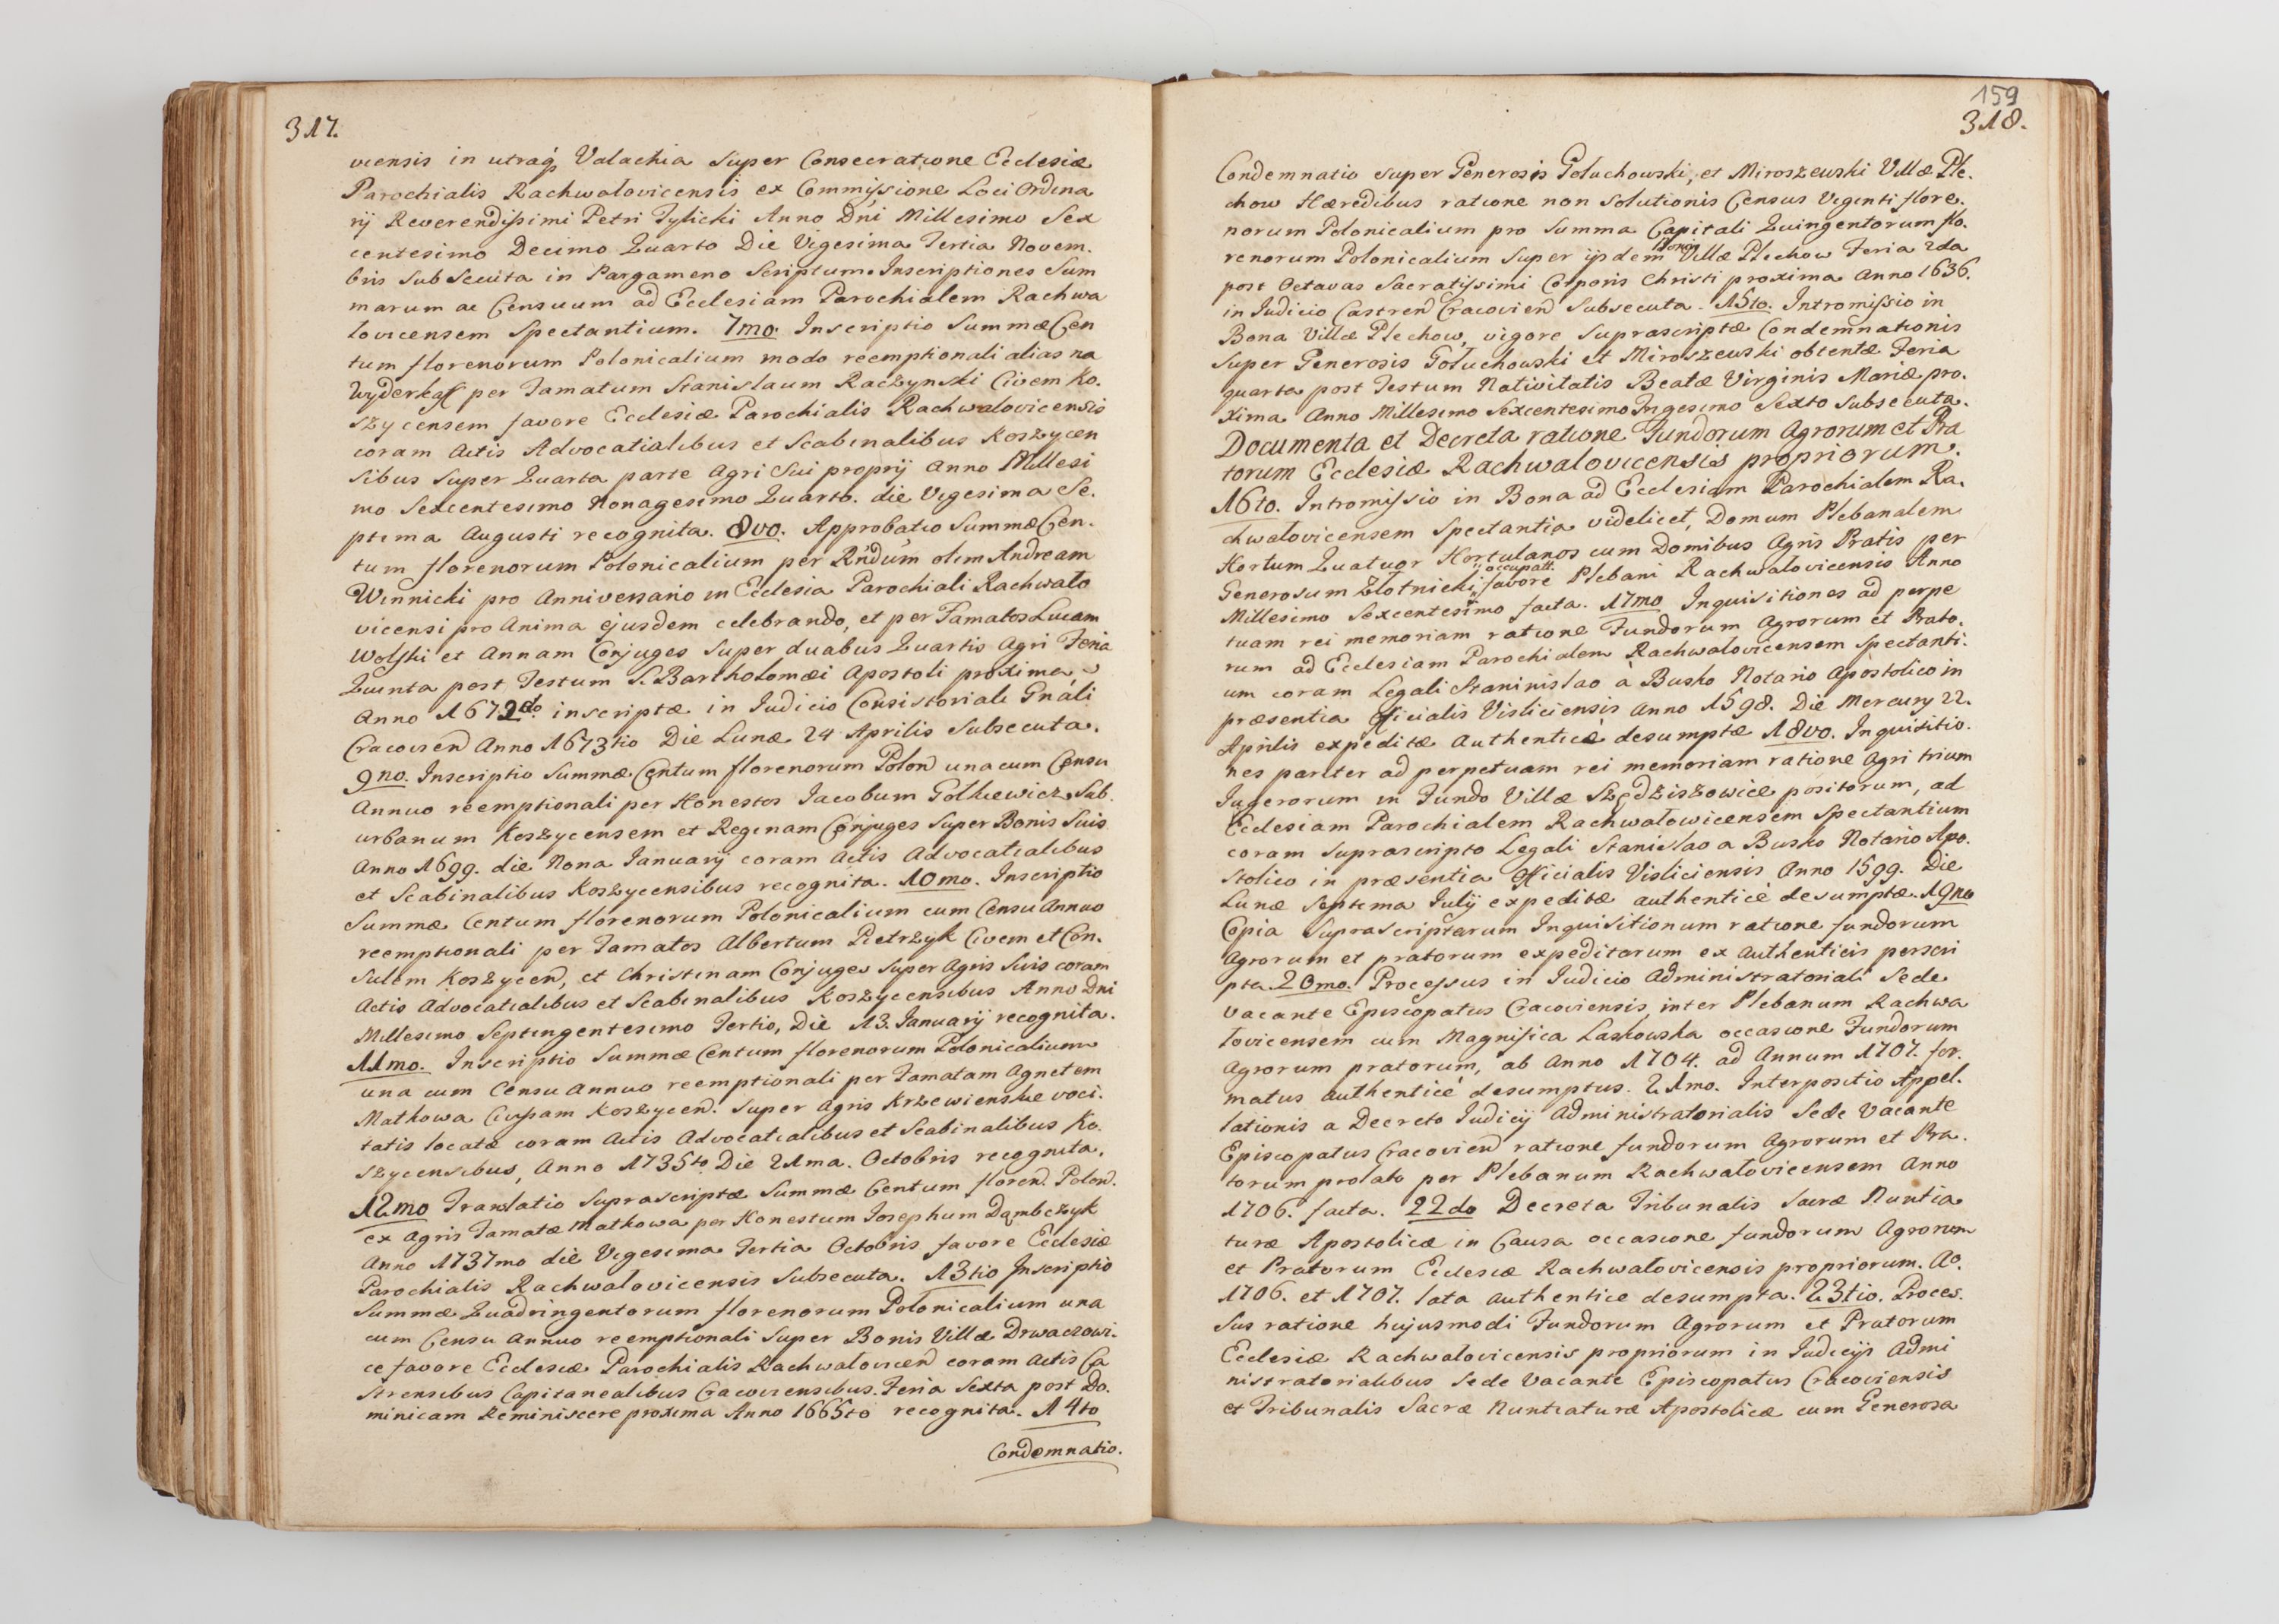 317.
viensis in utraq́ Valachia super Consecratione Ecclesiæ
Parochialis Rachwałovicensis ex Commissione Loci Ordina
rij Reverendissimi Petri Tylicki Anno Dńi Millesimo Sex
centesimo Decimo Quarto Die Vigesima Tertia Novem.
bris subsecuta in Pargameno Scriptum. Inscriptiones Sum
marum ac Censuum ad Ecclesiam Parochialem Rachwa
lovicensem Spectantium. 7mo. Inscriptio Summæ Cen
tum florenorum Polonicalium modo reemptionali alias na
Wyderkaff per Famatum Stanislaum Raczynski Civem Ko.
szycensem favore Ecclesiæ Parochialis Rachwalovicensis
coram Actis Advocatialibus et Scabinalibus Koszycen
sibus super Quarta parte Agri sui proprij Anno Millesi
mo Sexcentesimo Nonagesimo Quarto. die Vigesima Se.
ptima Augusti recognita. 8vo. Approbatio Summæ Cen.
tum florenorum Polonicalium per Rńdúm olim Andream
Winnicki pro Anniversario in Ecclesia Parochiali Rachwało
vicensi pro Anima ejusdem celebrando, et per Famatos Lucam
Wolski et Annam Conjuges super duabus Quartis Agri Feria
Quinta post Festum S. Bartholomæi Apostoli proxima
Anno 1672do. inscriptæ in Judicio Consistoriali Gnali
Cracovien Anno 1673tio Die Lunæ 24 Aprilis subsecuta.
9no. Inscriptio Summæ Centum florenorum Polon unacum Censu
Annuo reemptionali per Honestos Jacobum Golkiewicz Sub.
urbanum Koszycensem et Reginam Conjuges super Bonis suis
Anno 1699. die Nona Januarij coram Actis Advocatialibus
et Scabinalibus Koszycensibus recognita. 10mo. Inscriptio
Summæ Centum florenorum Polonicalium cum Censu Annuo
reemptionali per Famatos Albertum Pietrzyk Civem et Con.
sulem Koszycen, et Christinam Conjuges super Agris suis coram
Actis Advocatialibus et Scabinalibus Koszycensibus Anno Dni
Millesimo Septingentesimo Tertio, Die 13. Januarij recognita.
11mo. Inscriptio Summæ Centum florenorum Polonicalium
una cum Censu Annuo reemptionali per Famatam Agnetem
Matkowa Civissam Koszycen. super Agris Krzewienskie voci.
tatis locatæ coram Actis Advocatialibus et Scabinalibus Ko.
szycensibus, Anno 1735to. Die 21ma. Octobris recognita.
12mo Translatio supra scriptæ Summæ Centum floren. Polon.
ex Agris Famatæ Matkowa per Honestum Josephum Dąmbczyk
Anno 1737mo die Vigesima Tertia Octobris favore Ecclesiæ
Parochialis Rachwałovicensis subsecuta. 13tio Inscriptio
Summæ Quadringentorum florenorum Polonicalium una
cum Censu Annuo reemptionali super Bonis Villæ Drwaczowi.
ce favore Ecclesiæ Parochialis Rachwałovicen coram Actis Ca
strensibus Capitanealibus Cracoviensibus. Feria Sexta post Do.
minicam Reminiscere proxima Anno 1665to recognita. 14to
Condemnatio.
159
318.
Condemnatio super Generosis Goluchowski, et Miroszewski Villæ Ple.
chow Hæredibus ratione non solutionis Census Viginti flore.
norum Polonicalium pro Summa Capitali Quingentorum flo.
renorum Polonicalium super ijsdem Bonis Villæ Plechow Feria 2da
post Octavas Sacratissimi Corporis Christi proxima Anno 1636.
in Judicio Castren Cracovien subsecuta. 15to. Intromissio in
Bona Villæ Plechow, vigore supra scriptæ Condemnationis
super Generosis Gołuchowski et Miroszewski obtentæ Feria
quarta post Festum Nativitatis Beatæ Virginis Mariæ pro.
xima Anno Millesimo Sexcentesimo Trigesimo Sexto subsecuta.
Documenta et Decreta ratione Fundorum Agrorum et Pra
torum Ecclesiæ Rachwalovicensis propriorum.
16to. Intromissio in Bona ad Ecclesiam Parochialem Ra.
chwałovicensem Spectantia videlicet, Domum Plebanalem
Hortum Quatuor Hortulanos cum Domibus Agris Pratis per
Generosum Złotnicki occupatt. favore Plebani Rachwałovicensis Anno
Millesimo Sexcentesimo facta. 17mo Inquisitiones ad perpe
tuam rei memoriam ratione Fundorum Agrorum et Prato.
rum ad Ecclesiam Parochialem Rachwalovicensem spectanti.
um coram Legali Staninislao à Busko Notario Apostolico in
præsentia Officialis Visliciensis Anno 1598. Die Mercurij 22.
Aprilis expeditæ authenticè desumptæ 18vo. Inquisitio.
nes pariter ad perpetuam rei memoriam ratione Agri trium
Jugerorum in Fundo Villæ Szędziszowice positorum, ad
Ecclesiam Parochialem Rachwałowicensem spectantium
coram suprascripto Legali Stanislao a Busko Notario Apo.
stolico in præsentia Officialis Visliciensis Anno 1599. Die
Lunæ Septima Julij expeditæ authenticè desumptæ. 19no
Copia supra scriptarum Inquisitionum ratione fundorum
Agrorum et pratorum expeditorum ex Authenticis perscri
pta. 20mo. Processus in Judicio Administratoriali Sede
vacante Episcopatus Cracoviensis, inter Plebanum Rachwa
łovicensem cum Magnifica Laskowska occasione Fundorum
Agrorum pratorum, ab Anno 1704. ad Annum 1707. for.
matus authenticè desumptus. 21mo. Interpositio Appel.
lationis a Decreto Judicij Administratorialis Sede Vacante
Episcopatus Cracovien ratione fundorum Agrorum et Pra.
torum prolato per Plebanum Rachwałovicensem Anno
1706. facta. 22do Decreta Tribunalis Sacræ Nuntia
turæ Apostolicæ in Causa occasione fundorum Agrorum
et Pratorum Ecclesiæ Rachwałovicensis propriorum. Ao.
1706. et 1707. lata authentice desumpta. 23tio. Proces.
sus ratione hujusmodi Fundorum Agrorum et Pratorum
Ecclesiæ Rachwalovicensis propriorum in Judicijs Admi
nistratorialibus Sede Vacante Episcopatus Cracoviensis
et Tribunalis Sacræ Nuntiaturæ Apostolicæ cum Generosa